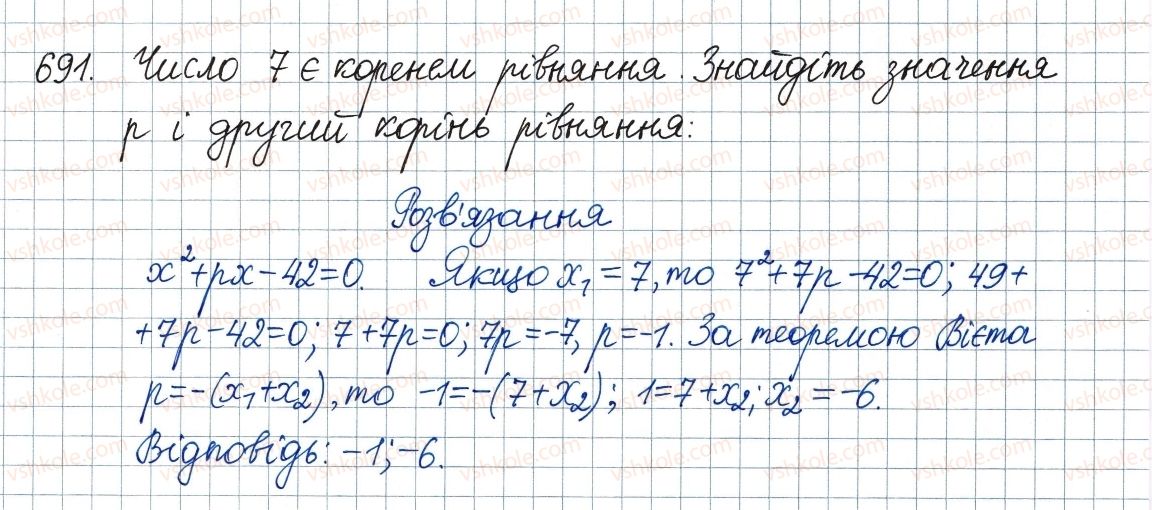 691. Число 7 є коренем рівняння. Знайдіть значення
p і другий корінь рівняння:
Розв'язання
x²+px-42=0. Якщо x₁=7, то 7²+7p-42=0; 49+
+7p-42=0; 7+7p=0; 7p=-7, p=-1. За теоремою Вієта
p=-(x₁+x₂), то -1=-(7+x₂); 1=7+x₂; x₂=-6.
Відповідь: -1; -6.
vshkole.com